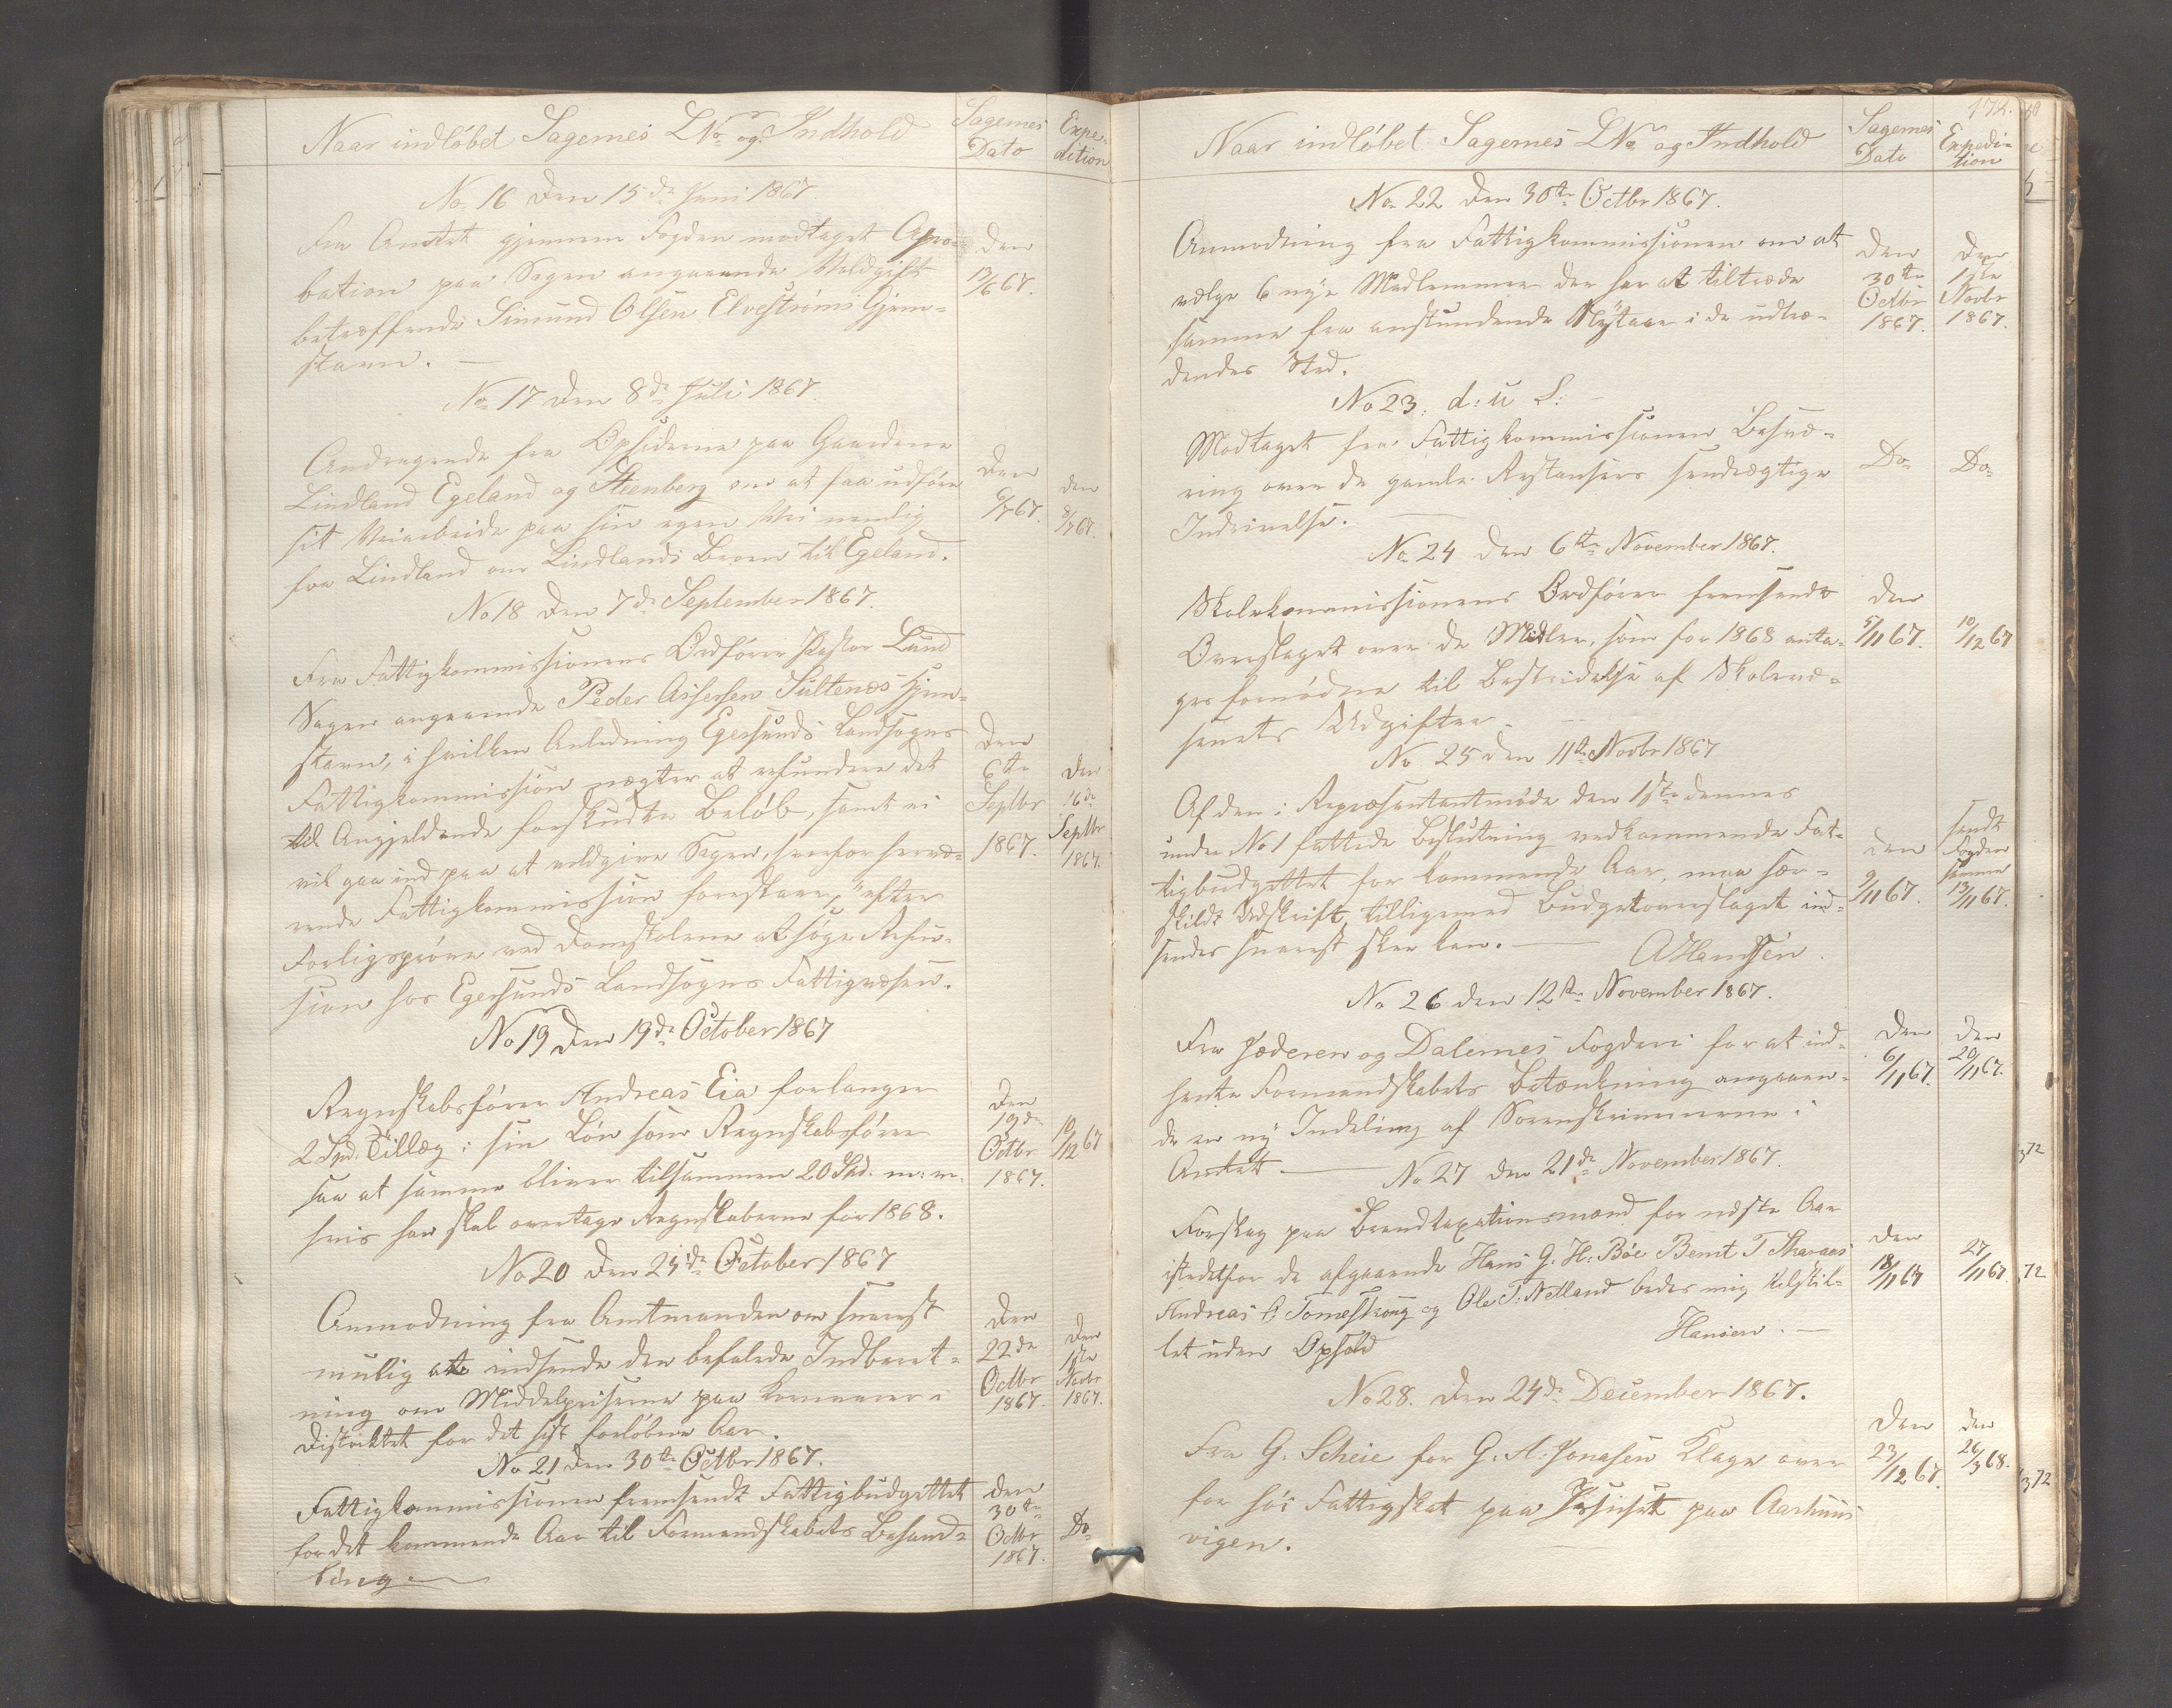 Naar indløbet Sagernes LNo og Indhold
Sagernes Dato
Expedition
No. 16 Den 15de Juni 1867.
Fra Amtet gjennem Fogden modtaget Apro-
bation paa Sagen angaaende Voldgift
betræffende Simund Olsen Elvestrøms Hjem-
stavn. —
Den 13/6 67.
No 17 Den 8de Juli 1867.
Andragende fra Opsiderne paa Gaardene
Lindland Egeland og Steenberg om at faa udføre
sit Veiarbeide paa sin egen Vei nemlig
fra Lindland om Lindlands Broen til Egeland.
Den 6/7 67.
den 8/7 67.
No 18 Den 7de September 1867.
Fra Fattigkommissionens Ordfører Pastor Lund
Sagen angaaende Peder Assersen Sultenæs Hjem-
stavn, i hvilken Anledning Egersunds Landsogns
Fattigkommission nægter at refundere det
til Angjeldende forskudte Beløb, samt ei
vil gaa ind paa at voldgive Sagen, hvorfor hervæ-
rende Fattigkommission foreslaar, "efter
Forligsprøve ved Domstolene at søge Refu-
sion hos Egersunds Landsogns Fattigvæsen.
Den 6te Septbr 1867.
Den 16de Septbr 1867.
No 19 Den 19de October 1867
Regnskabsfører Andreas Eia forlanger
2 Spd. Tillæg i sin Løn som Regnskabsfører
saa at samme bliver tilsammen 20 Spd. m: m.
hvis han skal overtage Regnskaberne for 1868.
Den 19de Octbr 1867.
10/12 67
No 20 Den 25de October 1867
Anmodning fra Amtmanden om snarest
mulig at indsende den befalede Indberet-
ning om Middelpriserne paa Kornvarer i
Distriktet for det sidst forløbne Aar.
Den 22de Octbr 1867.
Den 1ste Novbr 1867.
No 21 Den 30te Octbr 1867.
Fattigkommissionen fremsendt Fattigbudgettet
for det kommende Aar til Formandskabets Behand-
ling. —
den 30te Octbr 1867.
Do
172.
Naar indløbet Sagernes LNo og Indhold
Sagernes Dato
Expedition
No 22 Den 30te Octbr 1867.
Anmodning fra Fattigkommissionen om at
vælge 6 nye Medlemmer der har at tiltræde
samme fra anstundende Nytaar i de udtræ-
dendes Sted.
Den 30te Octbr 1867.
Den 1ste Novbr 1867.
No 23. d: u S: —
Modtaget fra Fattigkommissionen Besvæ-
ring over de gamle Restansers sendrægtige
Indrivelse. —
Do
Do
No 24 Den 6te November 1867.
Skolekommissionens Ordfører fremsendt
Overslaget over de Midler, som for 1868 anta-
ges fornødne til Bestridelse af Skolevæ-
senets Udgifter. —
den 5/11 67.
10/12 67
No 25 Den 11te Novbr 1867
Af den i Repræsentantmøde den 1ste dennes
under No 1 fattede Beslutning vedkommende Fat-
tigbudgettet for kommende Aar, maa sær-
skildt Udskrift tilligemed Budgetoverslaget ind-
sendes snarest ske kan. — A Hansen.
Den 9/11 67.
sendt Fogden samme 13/11 67.
No 26 den 12te November 1867.
Fra Jæderen og Dalernes Fogderi for at ind-
hente Formandskabets Betænkning angaaen-
de en ny Indeling af Sorenskriverierne i
Amtet. —
Den 6/11 67.
Den 20/11 67.
No 27 den 21de November 1867.
Forslag paa Brandtaxationsmænd for næste Aar
istedetfor de afgaaende Hans G. H. Bøe Bernt T Skaraas
Andreas O Tomestrong og Ole T. Netland bedes mig tilstil-
let uden Ophold Hansen. —
Den 18/11 67
27/11 67.
No 28. Den 24de December 1867.
Fra G. Scheie for G. A. Jonasen Klage over
for høi Fattigskat paa Huset paa Aarhuus
vigen.
Den 23/12 67.
den 26/3 68.